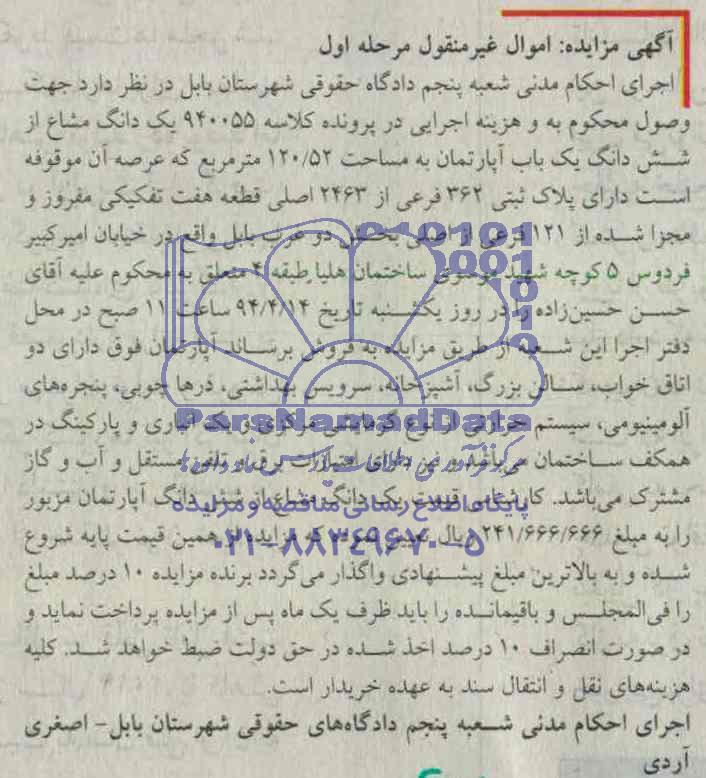 آگهی مزایده: اموال غیرمنقول مرحله اول
اجرای احکام مدنی شعبه پنجم دادگاه حقوقی شهرستان بابل در نظر دارد جهت
وصول محکوم به و هزینه اجرایی در پرونده کلاسه ۹۴۰۰۵۵ یک دانگ مشاع از
شش دانگ یک باب آپارتمان به مساحت ۱۲۰/۵۲ مترمربع که عرصه آن موقوفه
است دارای پلاک ثبتی ۳۶۲ فرعی از ۲۴۶۳ اصلی قطعه هفت تفکیکی مفروز و
مجزا شده از ۱۲۱ فرعی از اصلی بخش دو غرب بابل واقع در خیابان امیرکبیر
فردوس ۵ کوچه شهید موسوی ساختمان هلیا طبقه ۴ متعلق به محکوم علیه آقای
حسن حسین‌زاده را در روز یکشنبه تاریخ ۹۴/۴/۱۴ ساعت ۱۱ صبح در محل
دفتر اجرا این شعبه از طریق مزایده به فروش برساند. آپارتمان فوق دارای دو
اتاق خواب، سالن بزرگ، آشپزخانه، سرویس بهداشتی، درها چوبی، پنجره‌های
آلومینیومی، سیستم حرارتی از نوع گرمایشی مرکزی و یک انباری و پارکینگ در
همکف ساختمان می‌باشد و نیز دارای امتیازات برق و تلفن مستقل و آب و گاز
مشترک می‌باشد. کارشناس قیمت یک دانگ مشاع از شش دانگ آپارتمان مزبور
را به مبلغ ۲۴۱/۶۶۶/۶۶۶ ریال تعیین نموده که مزایده از همین قیمت پایه شروع
شده و به بالاترین مبلغ پیشنهادی واگذار می‌گردد برنده مزایده ۱۰ درصد مبلغ
را فی‌المجلس و باقیمانده را باید ظرف یک ماه پس از مزایده پرداخت نماید و
در صورت انصراف ۱۰ درصد اخذ شده در حق دولت ضبط خواهد شد. کلیه
هزینه‌های نقل و انتقال سند به عهده خریدار است.
اجرای احکام مدنی شعبه پنجم دادگاه‌های حقوقی شهرستان بابل- اصغری
آردی
ParsNamadData
پایگاه اطلاع رسانی مناقصه و مزایده
۰۲۱-۸۸۳۴۹۶۷۰-۵